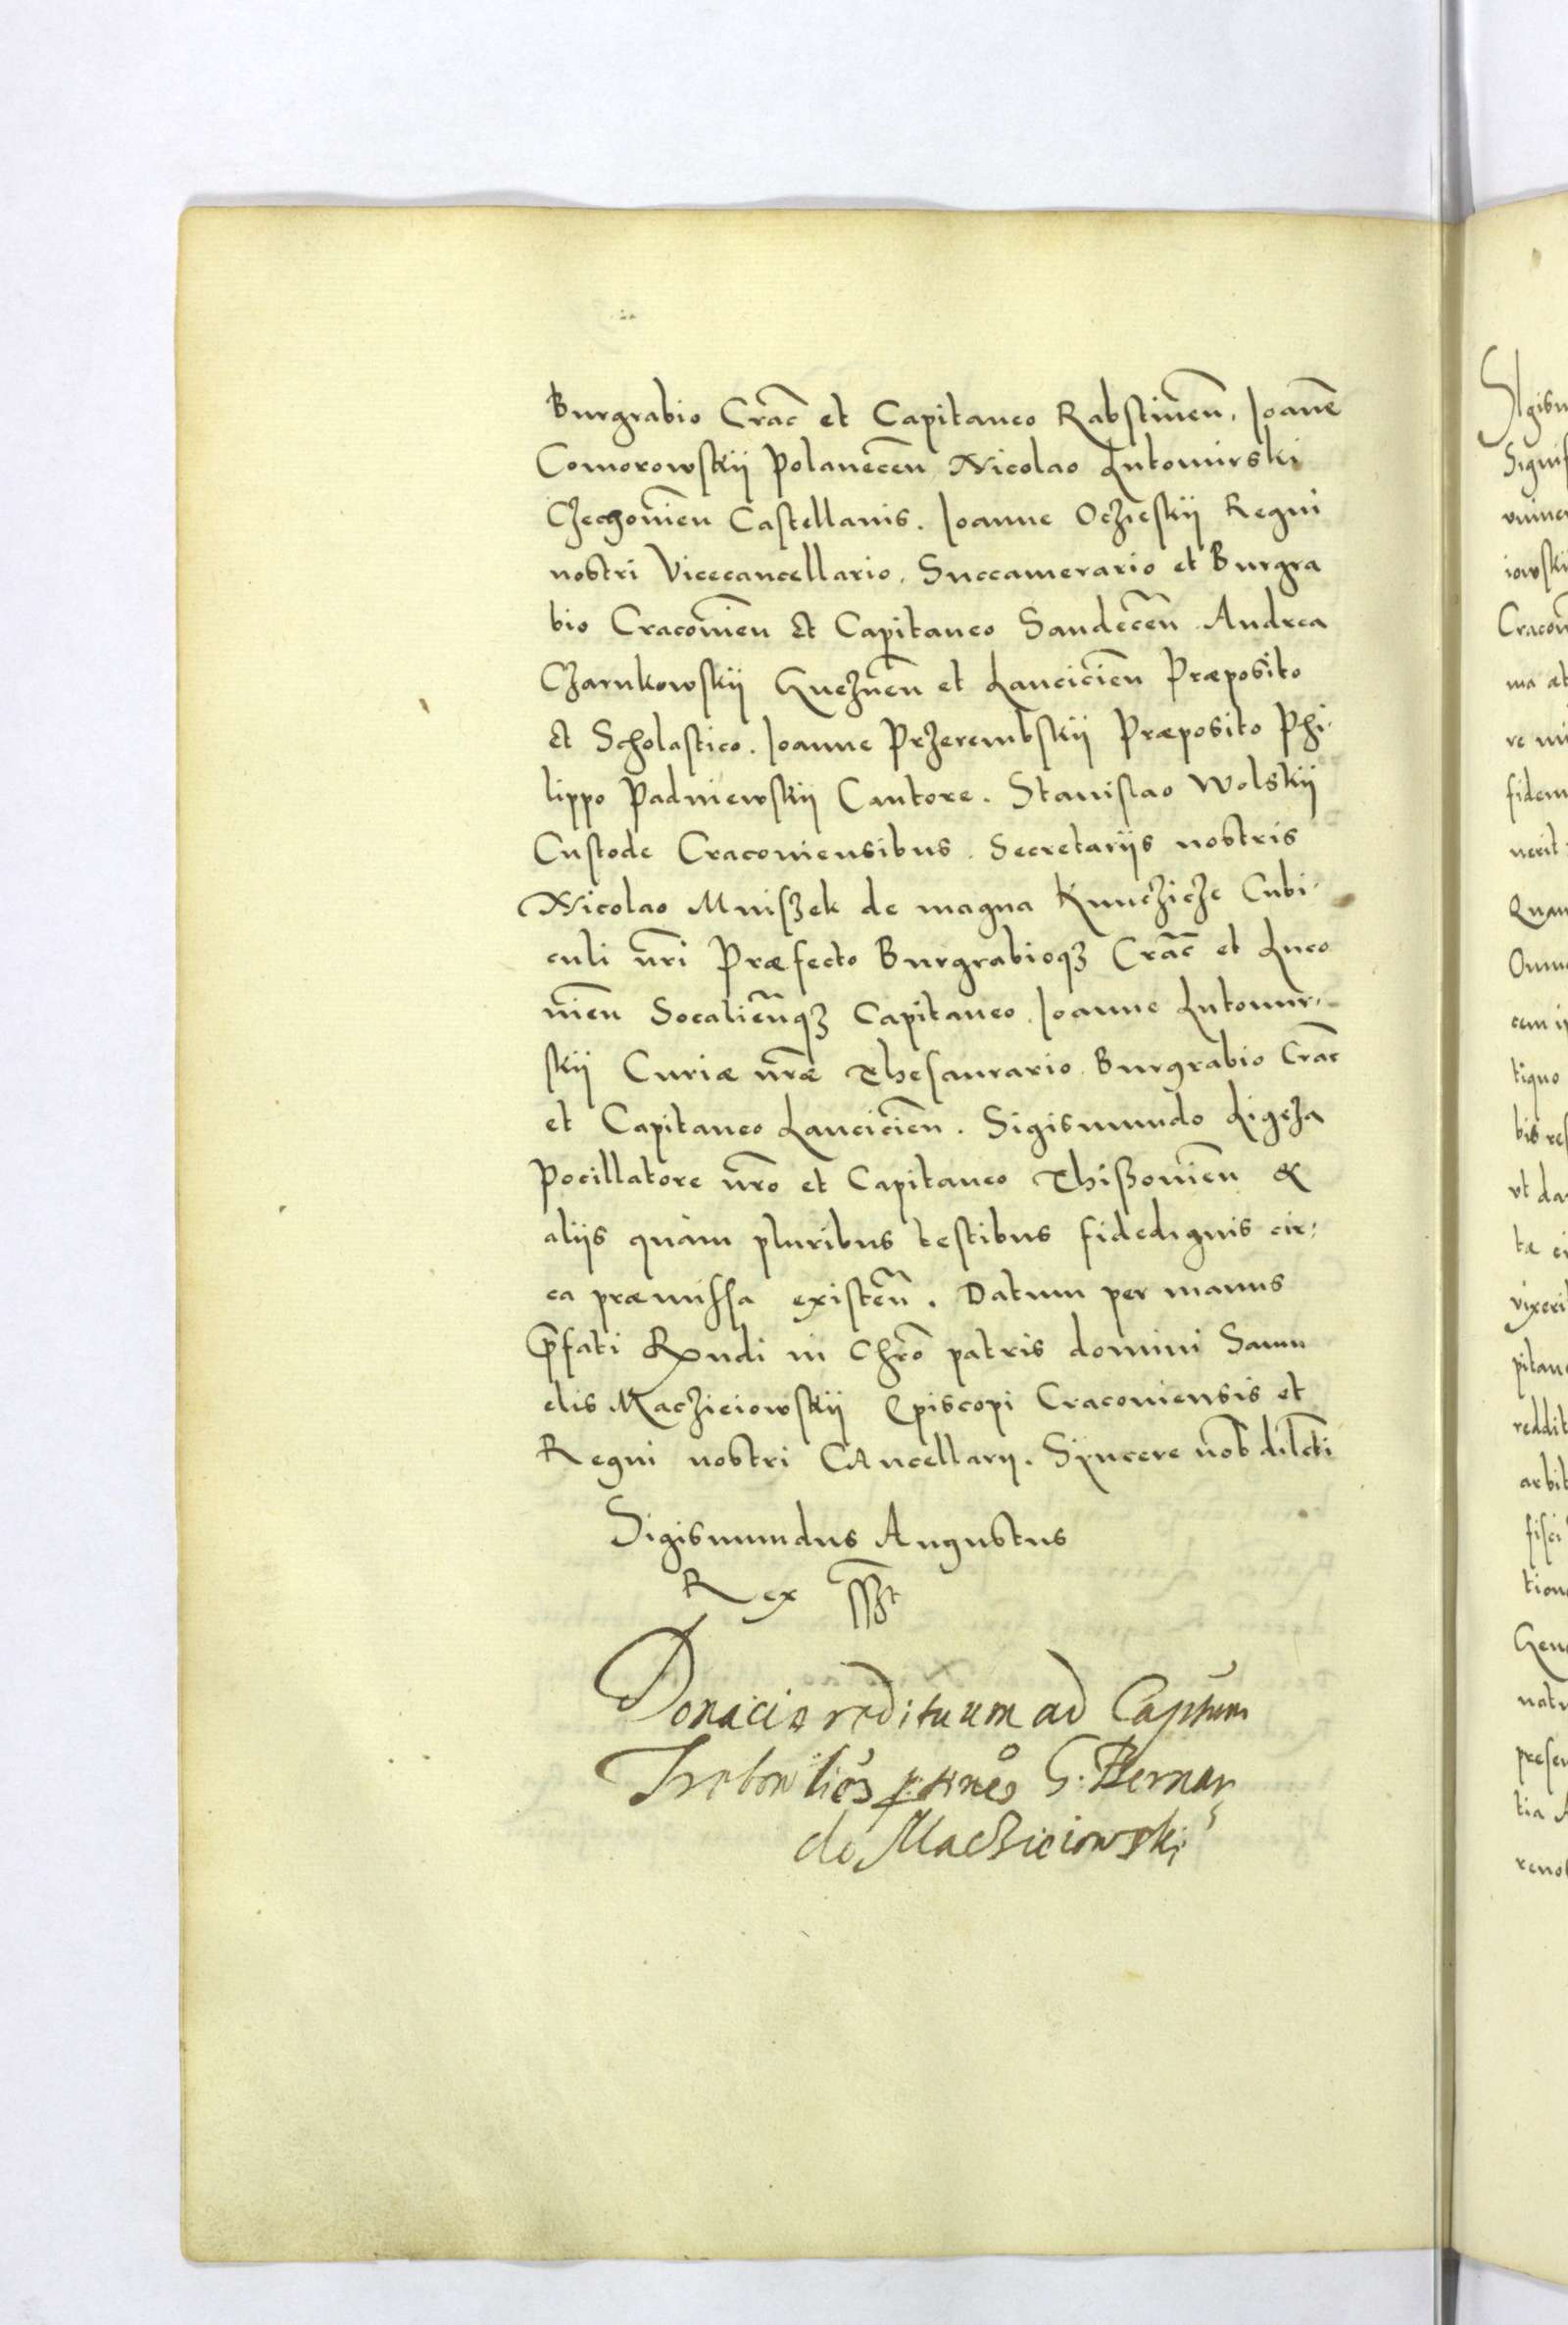 Burgrabio Crac̃ et Capitaneo Rabstineñ. Ioanne
Comorowskij Polanecen̄ Nicolao Lutomirski
Czechovien̄ Castellanis. Ioanne Oczieskij Regni
nostri Vicecancellario. Succamerario et Burgra
bio Cracovien̄ et Capitaneo Sandecen̄. Andrea
Czarnkowskij Gnezneñ et Lancicien̄ Præposito
et Scholastico. Ioanne Przerembskij Præposito Phi-
lippo Padniewskij Cantore. Stanislao Wolskij
Custode Cracoviensibus. Secretariis nostris
Nicolao Mniszek de magna Kunczicze Cubi-
culi nr̄i Præfecto Burgrabioqз Crac̄ et Luco
vien̄ Socalien̄qз Capitaneo. Ioanne Lutomir-
skij Curiæ nr̄æ Thesaurario. Burgrabio Crac̄
et Capitaneo Lancicien̄. Sigismundo Ligeza
Pocillatore nr̄o et Capitaneo Thiszovien̄ &
aliis quàm pluribus testibus fidedignis cir-
ca præmissa existen̄. Datum per manus
p̄fati Rx̄ndi in Chr̄o patris domini Samu
elis Macziciowskij Episcopi Cracoviensis et
Regni nostri Cancellarij. Syncere nob̄ dilcti
Sigismundus Augustus
Rex sszt
Donacio redituum ad Captum
G: Bernar
do Macziciowski
Sigism
Signif
iowskij
Cracov
fidem
verit
Quam
tiquo
ut da
pitan
reddit
arbit
tion